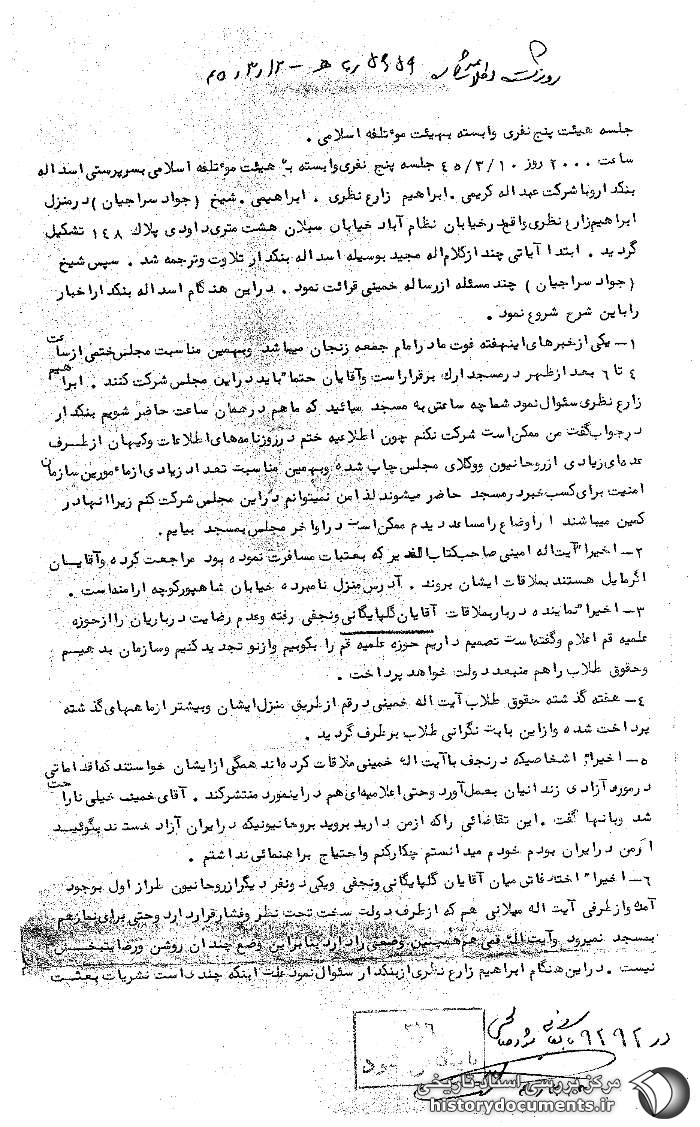 جلسه هیئت پنج نفری وابسته بهیئت موءتلفه اسلامی .
ساعت ۲۰۰۰ روز ۴۵/۳/۱۰ جلسه پنج نفری وابسته بـ هیئت موءتلفه اسلامی بسرپرستی اسداله
بنکدار وبا شرکت عبداله کریمی . ابراهیم زارع نظری ، ابراهیمی . شیخ ( جواد سراجیان ) درمنزل
ابراهیم زارع نظری واقع درخیابان نظام آباد خیابان سبلان هشت متری داودی پلاک ۱۴۸ تشکیل
گردید . ابتدا آیاتی چند ازکلام اله مجید بوسیله اسداله بنکدار تلاوت وترجمه شد . سپس شیخ
( جواد سراجیان ) چند مسئله ازرساله خمینی قرائت نمود . دراین هنگام اسداله بنکدار اخبار
راباین شرح شروع نمود .
۱ـ یکی ازخبرهای اینهفته فوت مادر امام جمعه زنجان میباشد وبهمین مناسبت مجلس ختمی ازساعت
۴ تا ۶ بعد ازظهر درمسجد ارک برقرار است وآقایان حتما" باید دراین مجلس شرکت کنند . ابراهیم
زارع نظری سئوال نمود شما چه ساعتی به مسجد میائید که ماهم درهمان ساعت حاضر شویم بنکدار
درجواب گفت من ممکن است شرکت نکنم چون اطلاعیه ختم درروزنامه های اطلاعات وکیهان ازطرف
عده ای زیادی ازروحانیون ووکلای مجلس چاپ شده وبهمین مناسبت تعداد زیادی ازماءمورین سازمان
امنیت برای کسب خبر درمسجد حاضر میشوند لذا من نمیتوانم دراین مجلس شرکت کنم زیرا آنها در
کمین میباشند اراوضاع را مساعد دیدم ممکن است دراواخر مجلس بمسجد بیایم .
۲ـ اخیرا" آیت اله امینی صاحب کتاب الغدیر که بعتبات مسافرت نموده بود مراجعت کرده وآقایـان
اگرمایل هستند بملاقات ایشان بروند . آدرس منزل نامبرده خیابان شاهپور کوچه ارامنه است .
۳ـ اخیرا" نماینده دربار بملاقات آقایان گلپایگانی ونجفی رفته وعدم رضایت درباریان را ازحوزه
علمیه قم اعلام وگفته است تصمیم داریم حوزه علمیه قم را بکوبیم وازنو تجدید کنیم وسازمان بدهیـم
وحقوق طلاب راهم منبعد دولت خواهد پرداخت .
۴ـ هفته گذشته حقوق طلاب آیت اله خمینی درقم ازطریق منزل ایشان وبیشتر ازماههای گذشته
پرداخت شده وازاین بابت نگرانی طلاب برطرف گردید .
۵ـ اخیرا" اشخاصیکه درنجف باآیت اله خمینی ملاقات کرده اند همگی ازایشان خواستند که اقداماتی
درمورد آزادی زندانیان بعمل آورد وحتی اعلامیه ای هم دراینمورد منتشرکند . آقای خمینی خیلی ناراحت
شد وبآنها گفت . این تقاضائی را که ازمن دارید بروید بروحانیونیکه درایران آزاد هستند بگوئیـد
اگرمن درایران بودم خودم میدانستم چکارکنم واحتیاج براهنمائی نداشتم .
۶ـ اخیرا" اختلافاتی میان آقایان گلپایگانی ونجفی ویکی دونفر دیگر ازروحانیون طراز اول بوجود
آمده وازطرفی آیت اله میلانی هم که ازطرف دولت سخت تحت نظر وفشار قرار دارد وحتی برای نماز هم
بمسجد نمیرود وآیت اله قمی هم همچنین وضعی را دارد بنابراین وضع چندان روشن ورضایتبخـش
نیست . دراین هنگام ابراهیم زارع نظری ازبنکدار سئوال نمود علت اینکه چند است نشریات بعثـت
۳۱۶
بایگانی شود
مرکز بررسی اسناد تاریخی
historydocuments.ir